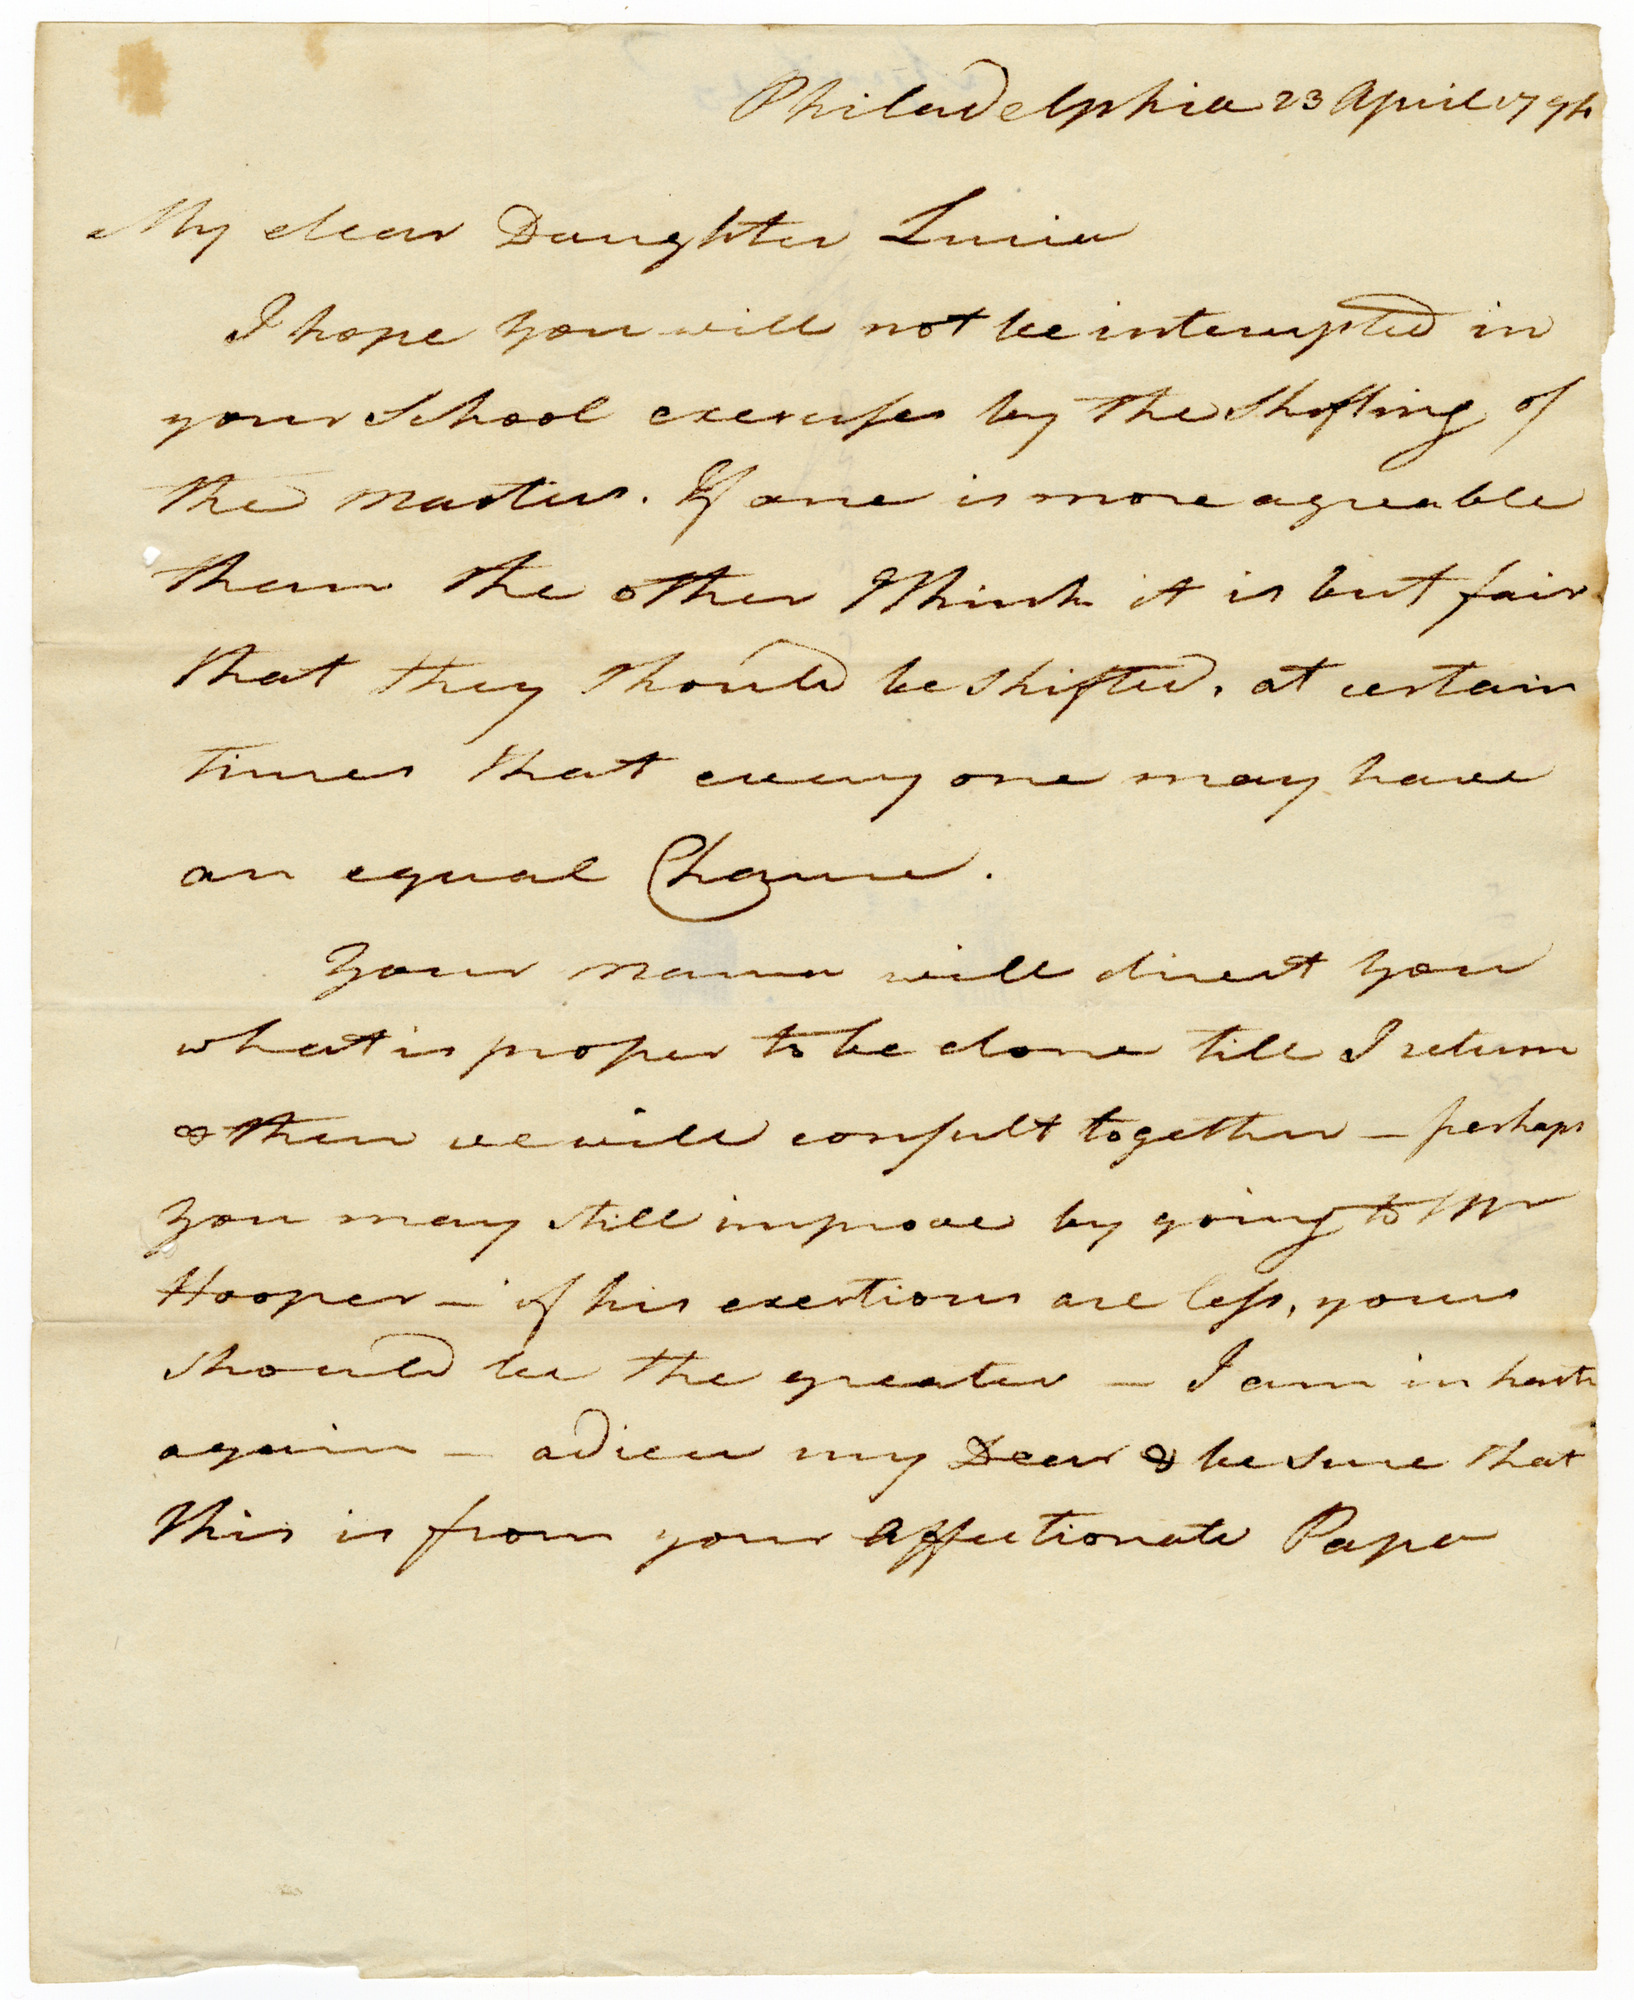 Philadelphia 23 April 1794
My dear Daughter Lucia
I hope you will not be interupted in
your School exercises by the Shifting of
the masters. If one is more agreable
than the other I think it is but fair
that they should be shifted, at certain
times that every one may have
an equal Chance.
Your mama will direct you
what is proper to be done till I return
& then we will consult together — perhaps
you may still improve by going to Mr
Hooper — if his exertions are less, yours
should be the greater — I am in haste
again — adieu my Dear & be sure that
this is from your affectionate Papa